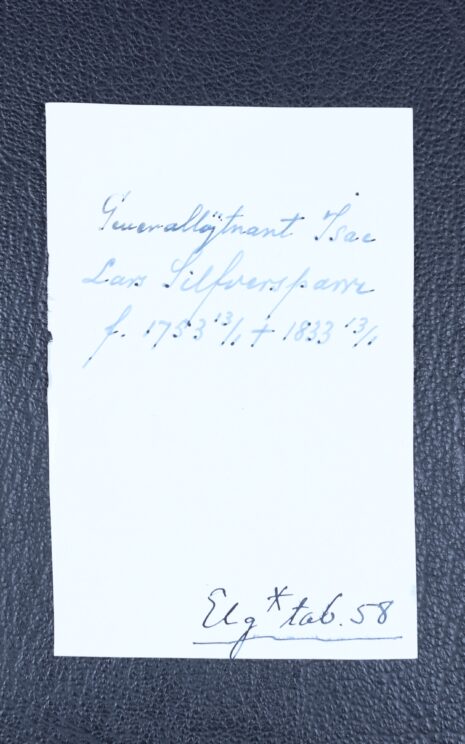 Generallöjtnant Isac
Lars Silfversparre
f. 1753 13/1 + 1833 13/1
Elg* tab. 58